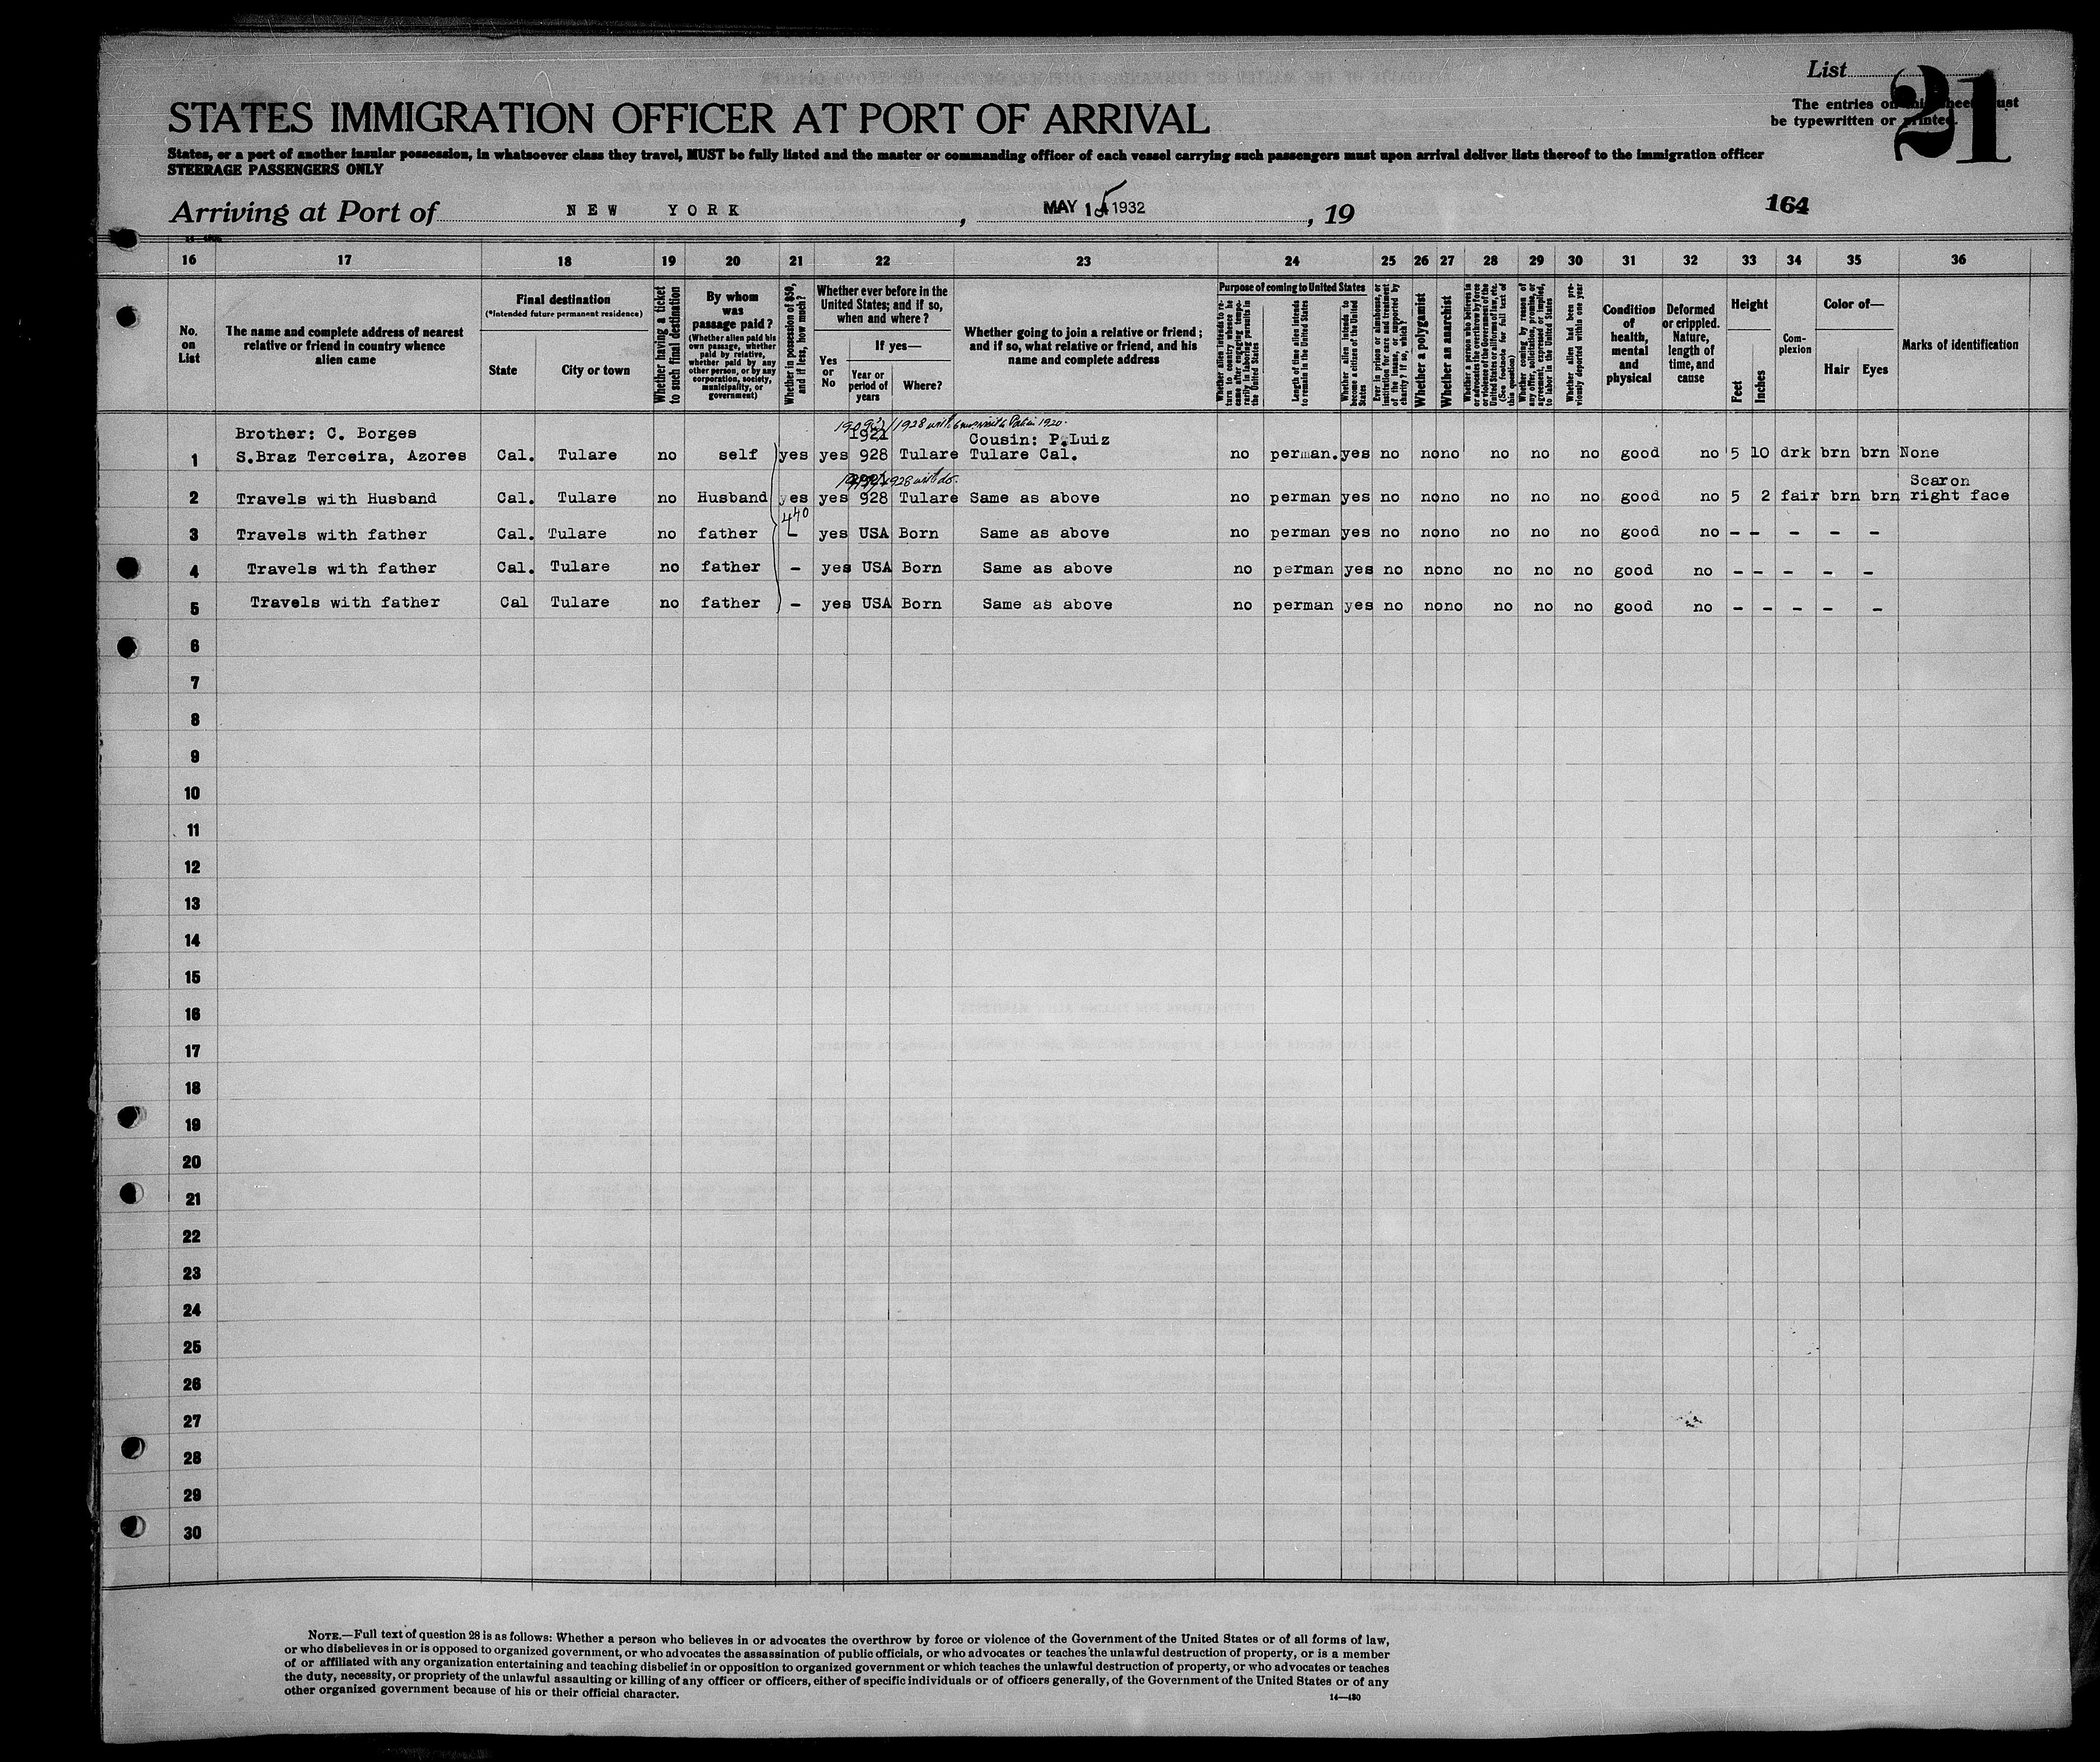 List
21
The entries on this sheet must
be typewritten or printed.
STATES IMMIGRATION OFFICER AT PORT OF ARRIVAL
States, or a port of another insular possession, in whatsoever class they travel, MUST be fully listed and the master or commanding officer of each vessel carrying such passengers must upon arrival deliver lists thereof to the immigration officer
STEERAGE PASSENGERS ONLY
Arriving at Port of NEW YORK, MAY 15 1932, 19
164
16 17 18 19 20 21 22 23 24 25 26 27 28 29 30 31 32 33 34 35 36
No. on List
The name and complete address of nearest relative or friend in country whence alien came
Final destination
(*Intended future permanent residence)
State
City or town
Whether having a ticket to such final destination
By whom was passage paid?
(Whether alien paid his own passage, whether paid by relative, whether paid by any other person, or by any corporation, society, municipality, or government)
Whether in possession of $50, and if less, how much?
Whether ever before in the United States; and if so, when and where?
Yes or No
If yes—
Year or period of years
Where?
Whether going to join a relative or friend; and if so, what relative or friend, and his name and complete address
Purpose of coming to United States
Whether alien intends to return to country whence he came after engaging temporarily in laboring pursuits in the United States
Length of time alien intends to remain in the United States
Whether alien intends to become a citizen of the United States
Ever in prison or almshouse or institution for care and treatment of the insane, or supported by charity? If so, which?
Whether a polygamist
Whether an anarchist
Whether a person who believes in or advocates the overthrow by force or violence of the Government of the United States or all forms of law, etc. (See footnote for full text of this question)
Whether coming by reason of any offer, solicitation, promise, or agreement, expressed or implied, to labor in the United States
Whether alien had been previously deported within one year
Condition of health, mental and physical
Deformed or crippled. Nature, length of time, and cause
Height
Feet
Inches
Complexion
Color of—
Hair
Eyes
Marks of identification
1909 1928 with 6 mos visit 1920.
Brother: C. Borges 1921 Cousin: P.Luiz
1 S.Braz Terceira, Azores Cal. Tulare no self yes yes 928 Tulare Tulare Cal. no perman. yes no no no no no no good no 5 10 drk brn brn None
1928
2 Travels with Husband Cal. Tulare no Husband yes yes 928 Tulare Same as above no perman yes no no no no no no good no 5 2 fair brn brn Scar on right face
440
3 Travels with father Cal. Tulare no father – yes USA Born Same as above no perman yes no no no no no no good no – – – – –
4 Travels with father Cal. Tulare no father – yes USA Born Same as above no perman yes no no no no no no good no – – – – –
5 Travels with father Cal Tulare no father – yes USA Born Same as above no perman yes no no no no no no good no – – – – –
6
7
8
9
10
11
12
13
14
15
16
17
18
19
20
21
22
23
24
25
26
27
28
29
30
NOTE.—Full text of question 28 is as follows: Whether a person who believes in or advocates the overthrow by force or violence of the Government of the United States or of all forms of law,
or who disbelieves in or is opposed to organized government, or who advocates the assassination of public officials, or who advocates or teaches the unlawful destruction of property, or is a member
of or affiliated with any organization entertaining and teaching disbelief in or opposition to organized government or which teaches the unlawful destruction of property, or who advocates or teaches
the duty, necessity, or propriety of the unlawful assaulting or killing of any officer or officers, either of specific individuals or of officers generally, of the Government of the United States or of any
other organized government because of his or their official character.
14—430